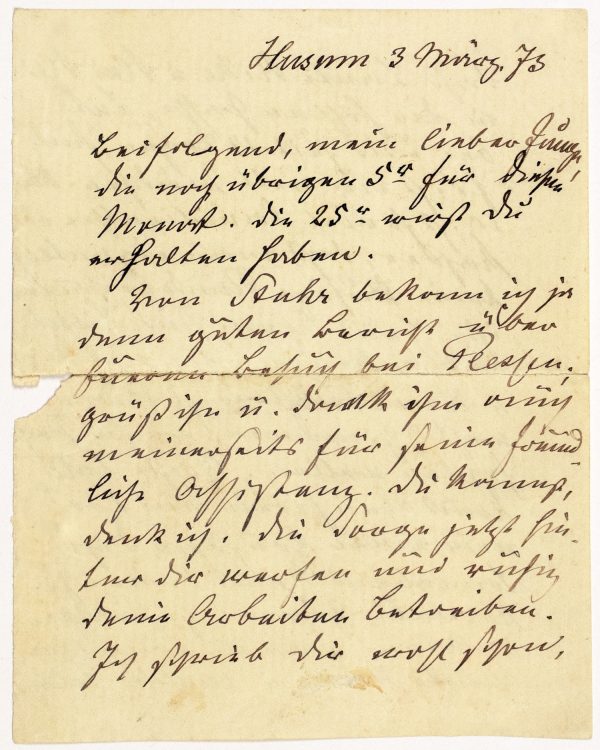 Husum 3 März. 73
Beifolgend, mein lieber Junge,
die noch übrigen 5 r für diesen
Monat. die 25 r wirst Du
erhalten haben.
Von Stuhr bekam ich ja
denn guten Bericht über
Eueren Besuch bei Plessen;
grüß ihn u. dank ihm auch
meinerseits für seine freund
liche Assistenz. Du kannst,
denk ich, die Sorge jetzt hin-
ter dir werfen und ruhig
deine Arbeiten betreiben.
Ich schrieb dir wohl schon,